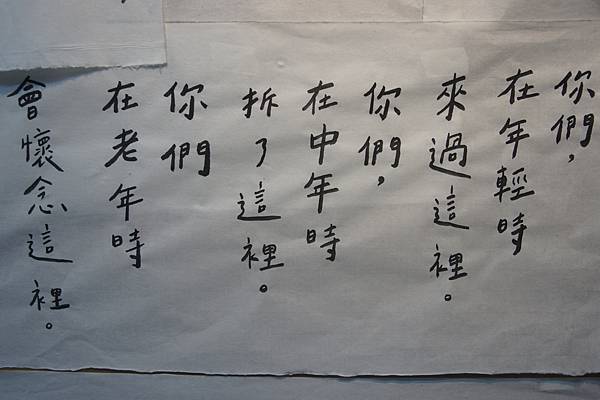 你們，
在年輕時
來過這裡。
你們，
在中年時
拆了這裡。
你們
在老年時
會懷念這裡。